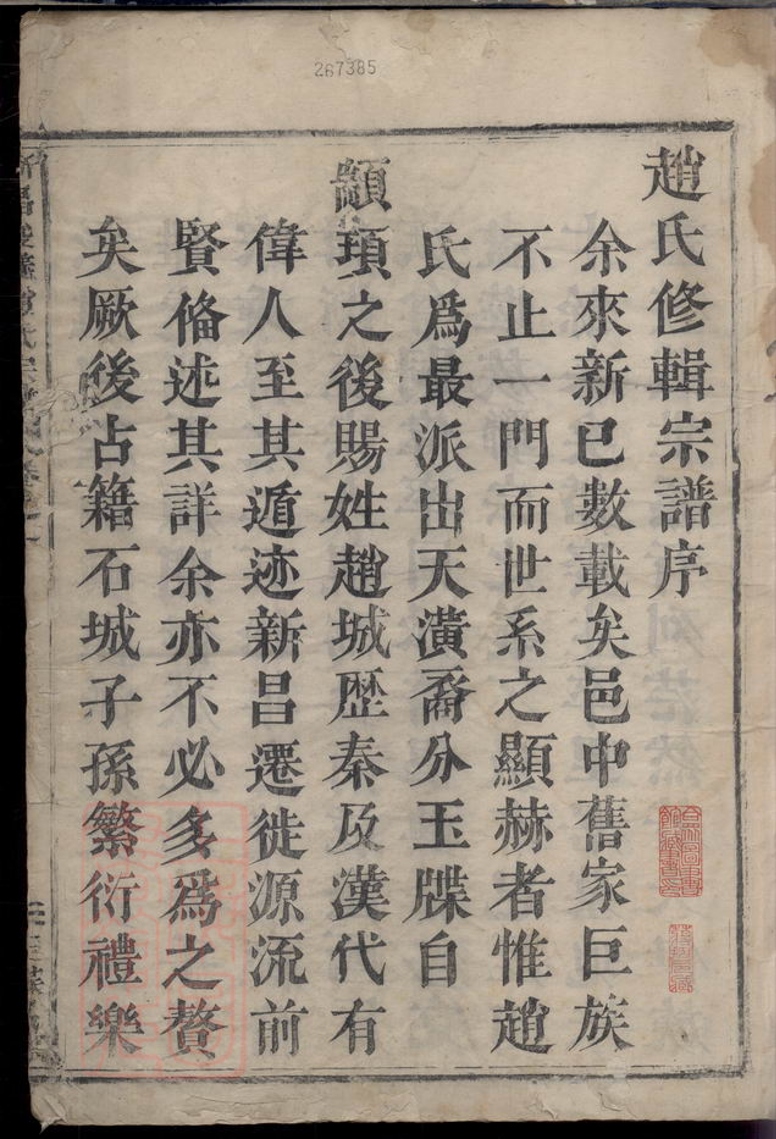 267385
趙氏修輯宗譜序
余來新已數載矣邑中舊家巨族
不止一門而世系之顯赫者惟趙
氏爲最派出天潢裔分玉牒自
顓頊之後賜姓趙城歷秦及漢代有
偉人至其遁迹新昌遷徙源流前
賢俻述其詳余亦不必多爲之贅
矣厥後占籍石城子孫繁衍禮樂